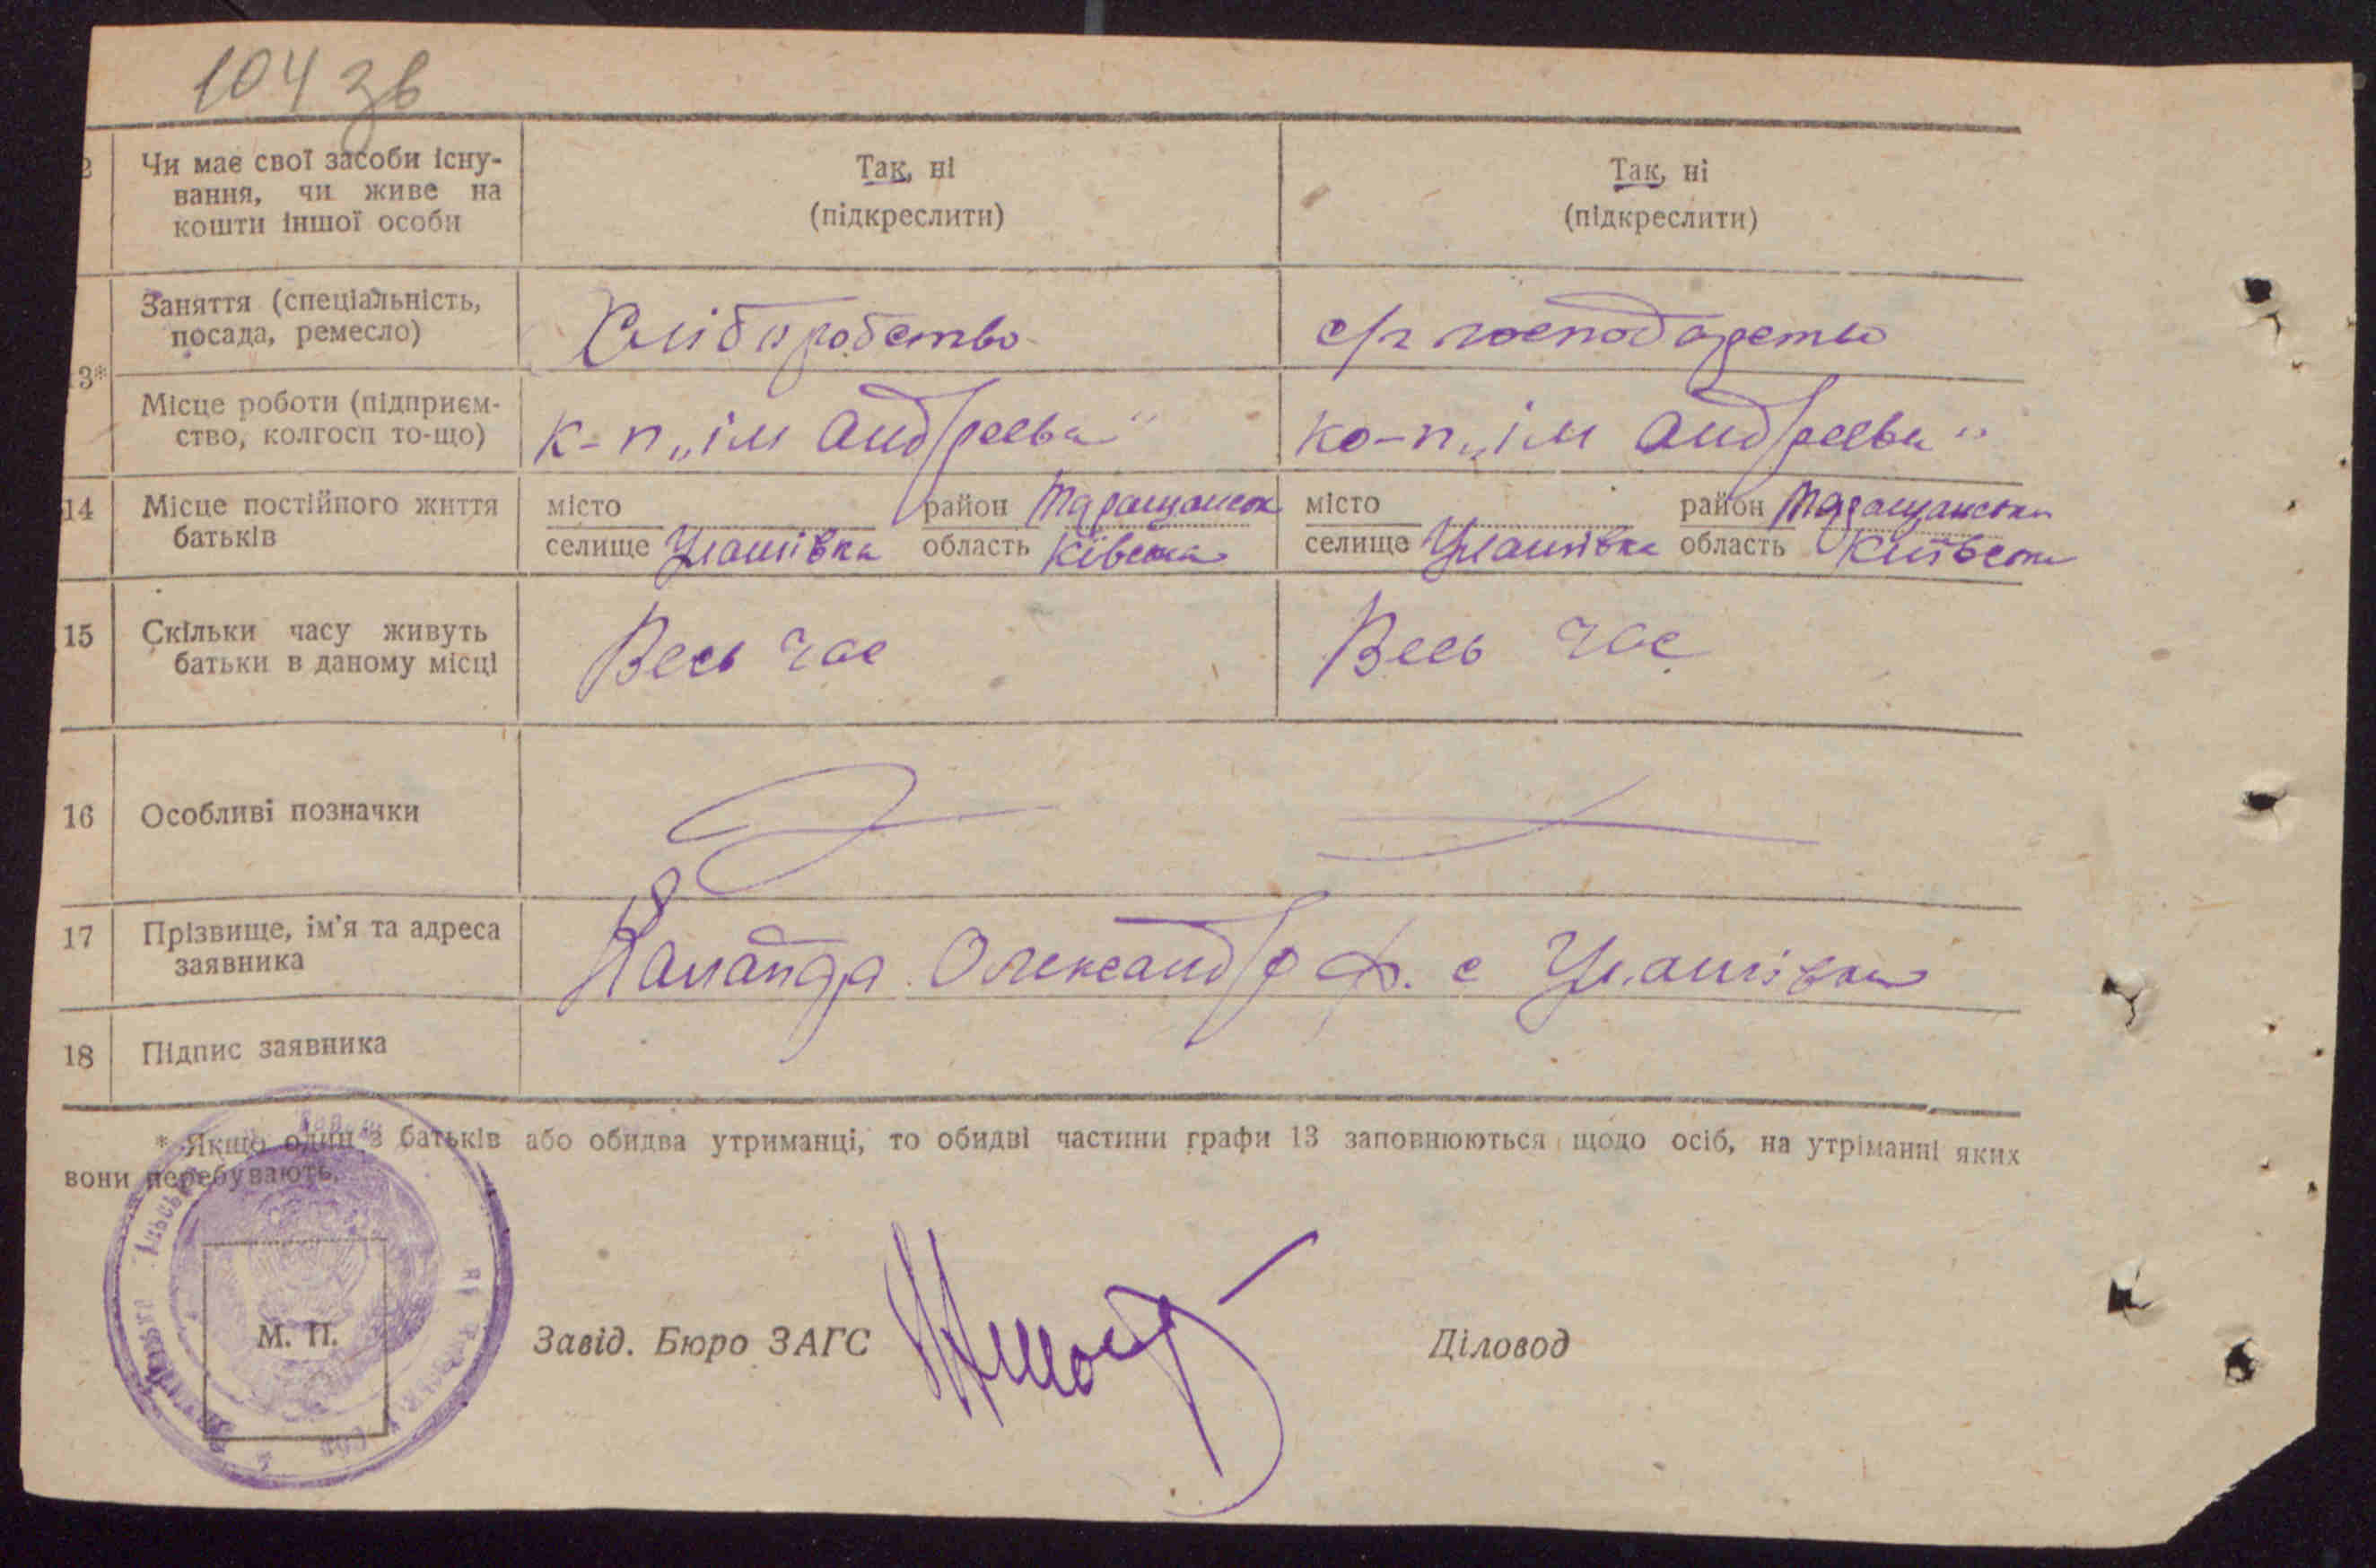 104 зв
2 Чи має свої засоби існу- Так, ні Так, ні
вання, чи живе на (підкреслити) (підкреслити)
кошти іншої особи
Заняття (спеціальність, Хліборобство с/г господарство
посада, ремесло)
13*
Місце роботи (підприєм- к-п „ім Андреєва“ ко-п „ім Андреєва“
ство, колгосп то-що)
14 Місце постійного життя місто район Таращанськ місто район Таращанськ
батьків селище Улашівка область Ківська селище Улашівка область Київська
15 Скільки часу живуть Весь час Весь час
батьки в даному місці
16 Особливі позначки
17 Прізвище, ім'я та адреса Олександр Ф. с Улашівка
заявника
18 Підпис заявника
* Якщо один з батьків або обидва утриманці, то обидві частини графи 13 заповнюються щодо осіб, на утріманні яких
вони перебувають.
М. П. Завід. Бюро ЗАГС Діловод